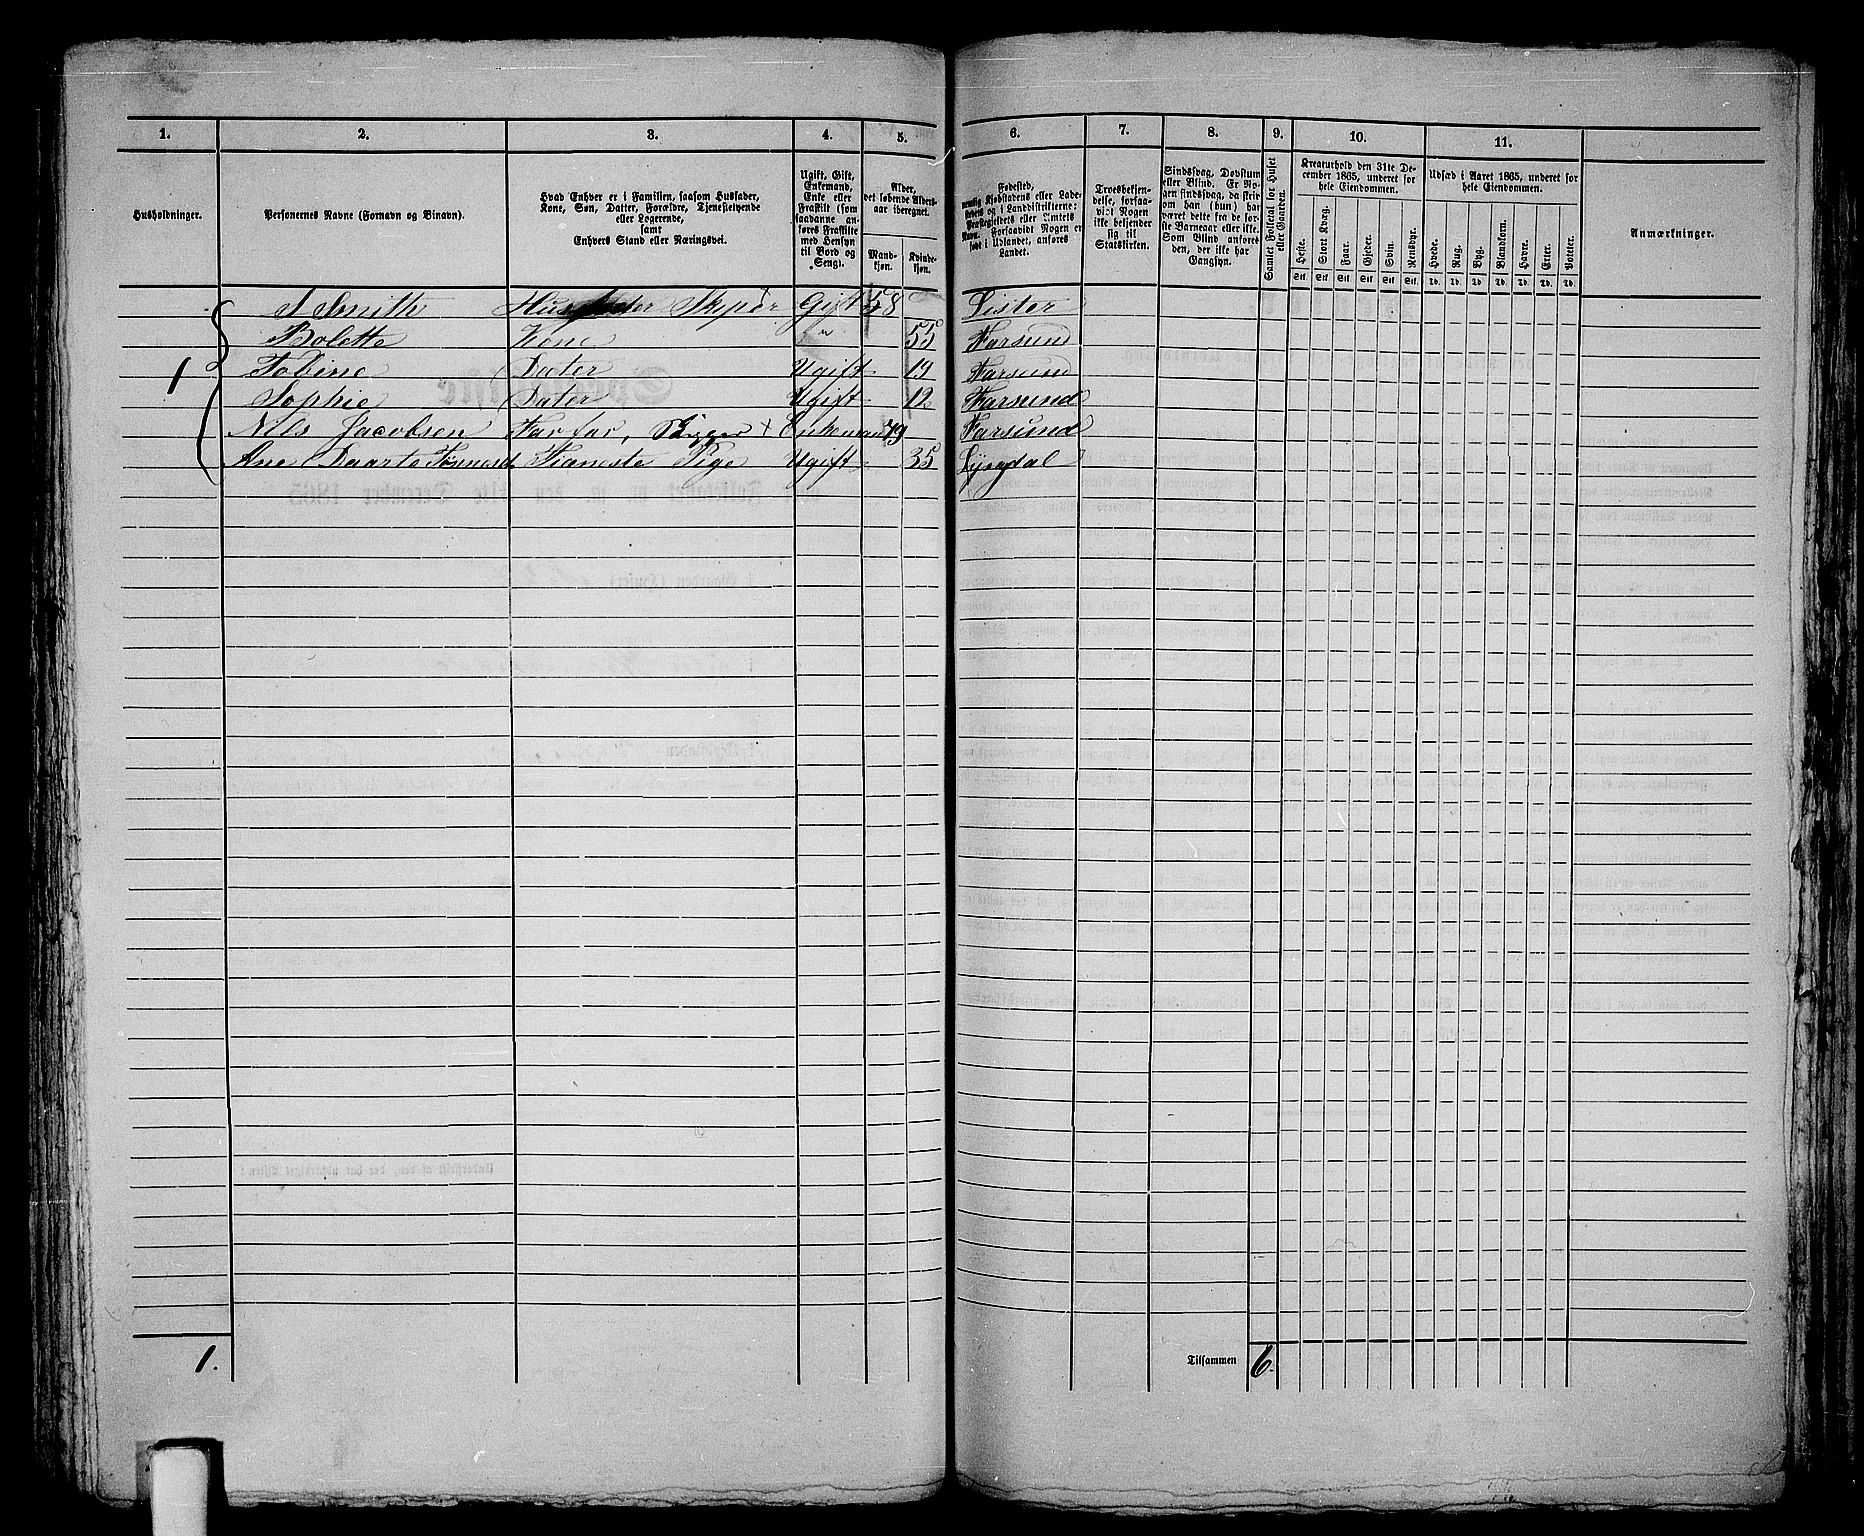 1. 2. 3. 4. 5. 6. 7. 8. 9. 10. 11.
Husholdninger.
Personernes Navne (Fornavn og Binavn).
Hvad Enhver er i Familien, saasom Husfader,
Kone, Søn, Datter, Forældre, Tjenestetyende
eller Logerende,
samt
Enhvers Stand eller Næringsvei.
Ugift, Gift,
Enkemand,
Enke eller
Fraskilt (som
saadanne an-
føres Fraskilte
med Hensyn
til Bord og
Seng).
Alder,
det løbende Alders-
aar iberegnet.
Mand-
kjøn.
Kvinde-
kjøn.
Fødested,
nemlig Kjøbstadens eller Lade-
stedets og i Landdistrikterne:
Præstegjeldets eller Amtets
Navn. Forsaavidt Nogen er
født i Udlandet, anføres
Landet.
Troesbekjen-
delse, forsaa-
vidt Nogen
ikke bekjender
sig til
Statskirken.
Sindssvag, Døvstum
eller Blind. Er No-
gen sindssvag, da skriv
om han (hun) har
været dette fra de før-
ste Barneaar eller ikke.
Som Blind anføres
den, der ikke har
Gangsyn.
Samlet Folketal for Huset
eller Gaarden.
Kreaturhold den 31te De-
cember 1865, underet for
hele Eiendommen.
Heste.
Stort Kvæg.
Faar.
Gjeder.
Svin.
Rensdyr.
Stk. Stk. Stk. Stk. Stk. Stk.
Udsæd i Aaret 1865, underet for
hele Eiendommen.
Hvede.
Rug.
Byg.
Blandkorn.
Havre.
Erter.
Poteter.
Td. Td. Td. Td. Td. Td. Td.
Anmærkninger.
Smith Gift 58 Lister
Bolette Kone 55 Farsund
1 Tobine Dater Ugift 19 Farsund
Sophie Dater Ugift 12 Farsund
Nils Jacobsen Farfar, Enkemand 79 Farsund
Ane Tianeste Pige Ugift 35 Lyngdal
1. Tilsammen 6.